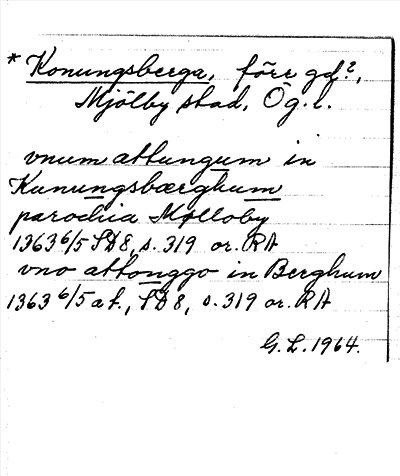 * Konungsberga, förr gd?,
Mjölby stad, Ög. l.
vnum attungum in
Kunungsbærghum
parochia Mølloby
1363 6/5 SD8, s. 319 or. RA
vno attonggo in Berghum
1363 6/5 a f., SD 8, s. 319 or. RA
G. L. 1964.